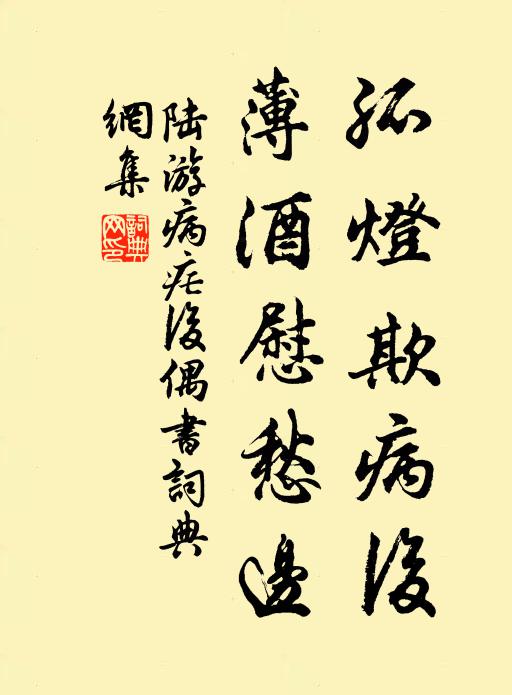 孤燈欺病後
薄酒慰愁邊
陆游病疟後偶書詞典
網集
詞典网印